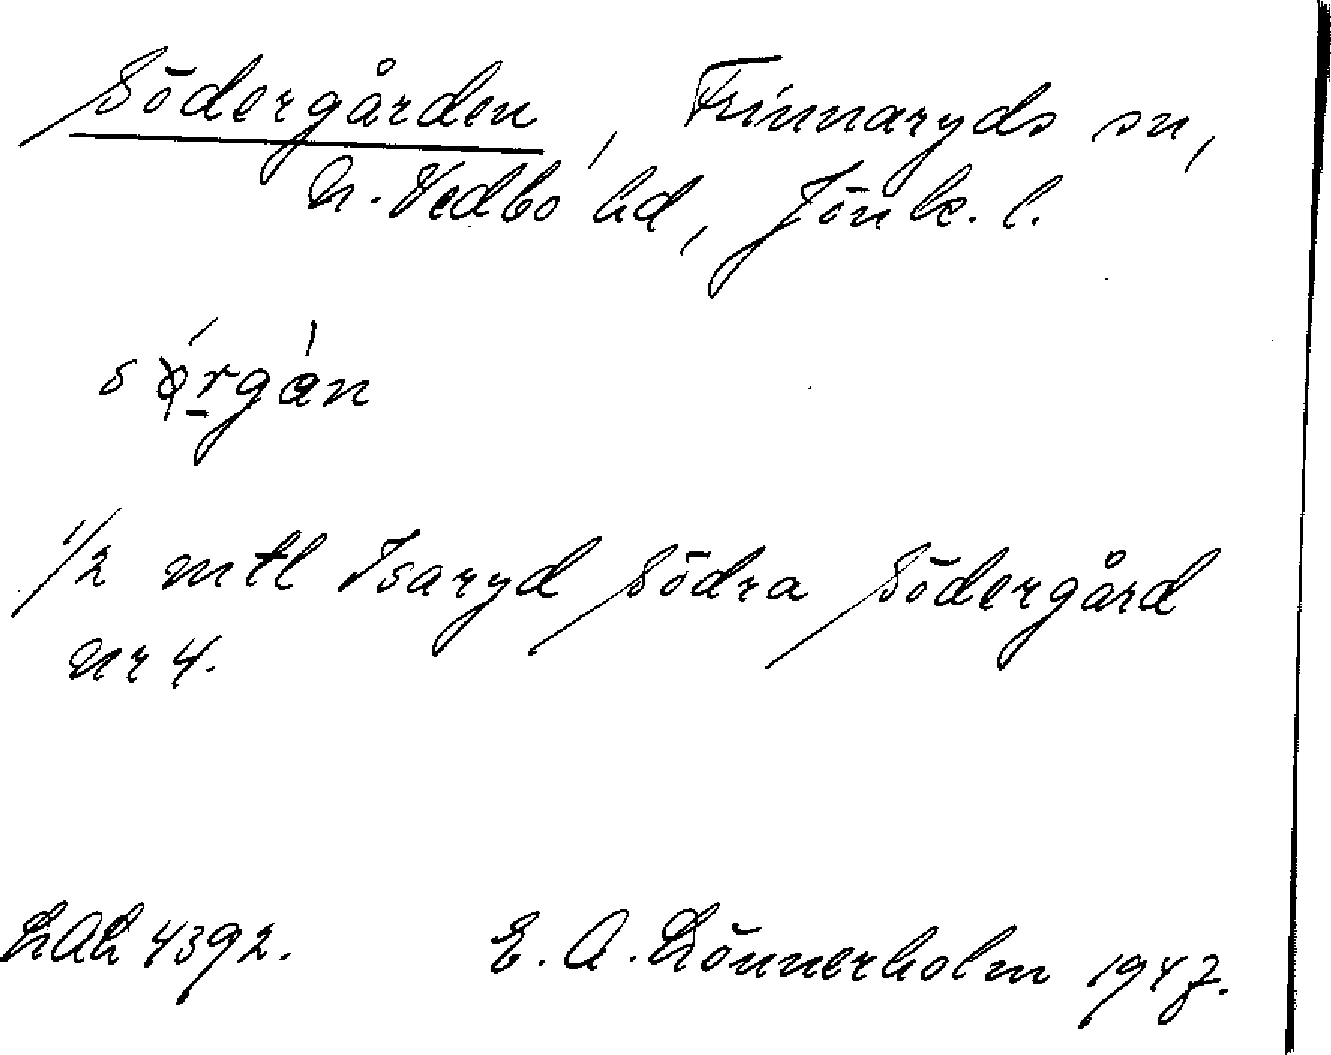 Södergården, Frinnaryds sn,
N. Vedbo hd, Jönk. l.
1/2 mtl Isaryd Södra Södergård
nr 4.
LAL 4392. E. A. Lönnerholm 1947.